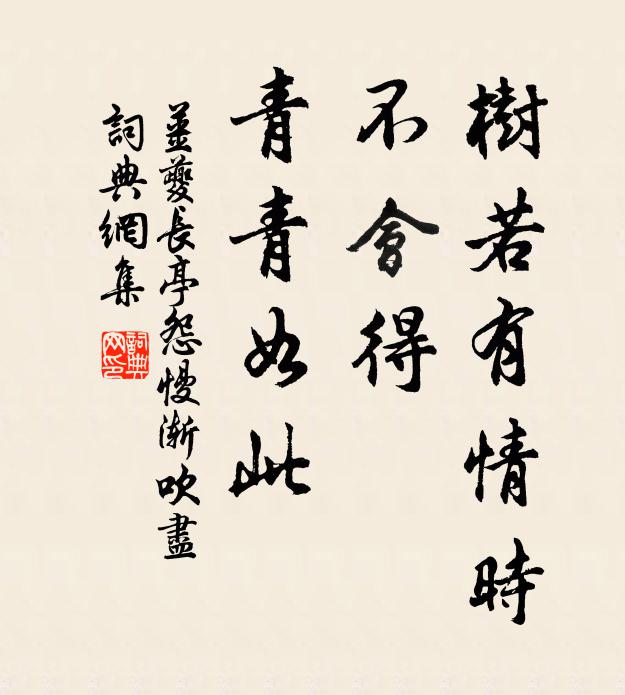 樹若有情時
不會得
青青如此
姜夔長亭怨慢漸吹盡
詞典網集
詞典网印